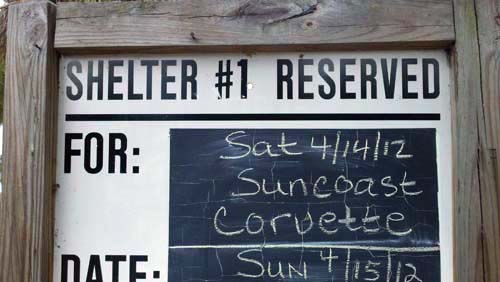 SHELTER #1 RESERVED
FOR:
Sat 4/14/12
Suncoast
Corvette
DATE:
Sun 4/15/12